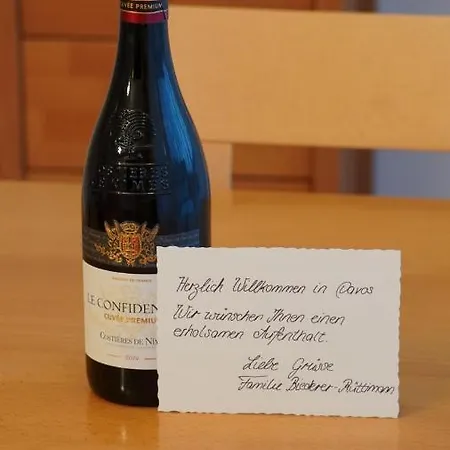 CUVÉE PREMIUM
COSTIÈRES
DE NÎMES
LE CONFIDEN
CUVÉE PREMIUM
COSTIÈRES DE NÎ
Herzlich Willkommen in Davos
Wir wünschen Ihnen einen
erholsamen Aufenthalt.
Liebe Grüsse
Familie Biederer-Rüttimann